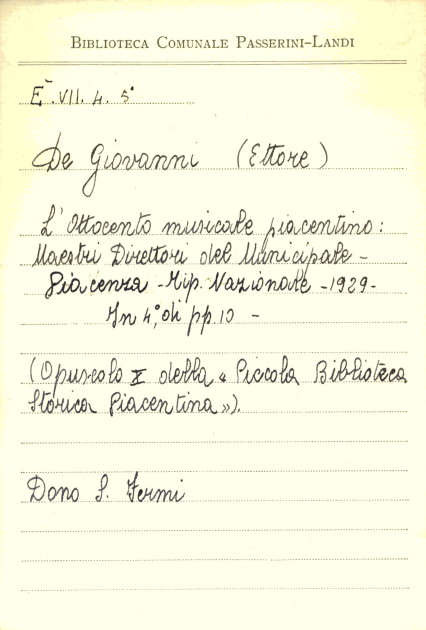 BIBLIOTECA COMUNALE PASSERINI-LANDI
E. VII. 4. 5°
De Giovanni (Ettore)
L'Ottocento musicale piacentino:
Maestri Direttori del Municipale -
Piacenza - Tip. Nazionale - 1929 -
In 4°, di pp. 10 -
(Opuscolo X della « Piccola Biblioteca
Storica Piacentina »).
Dono S. Fermi